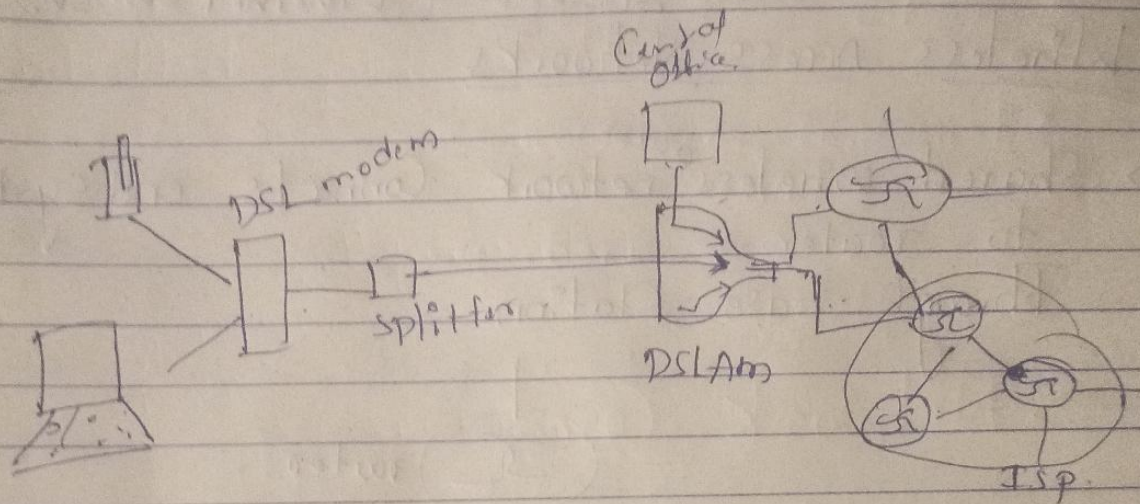 Central
Office
DSL modem
splitter
DSLAM
ISP.